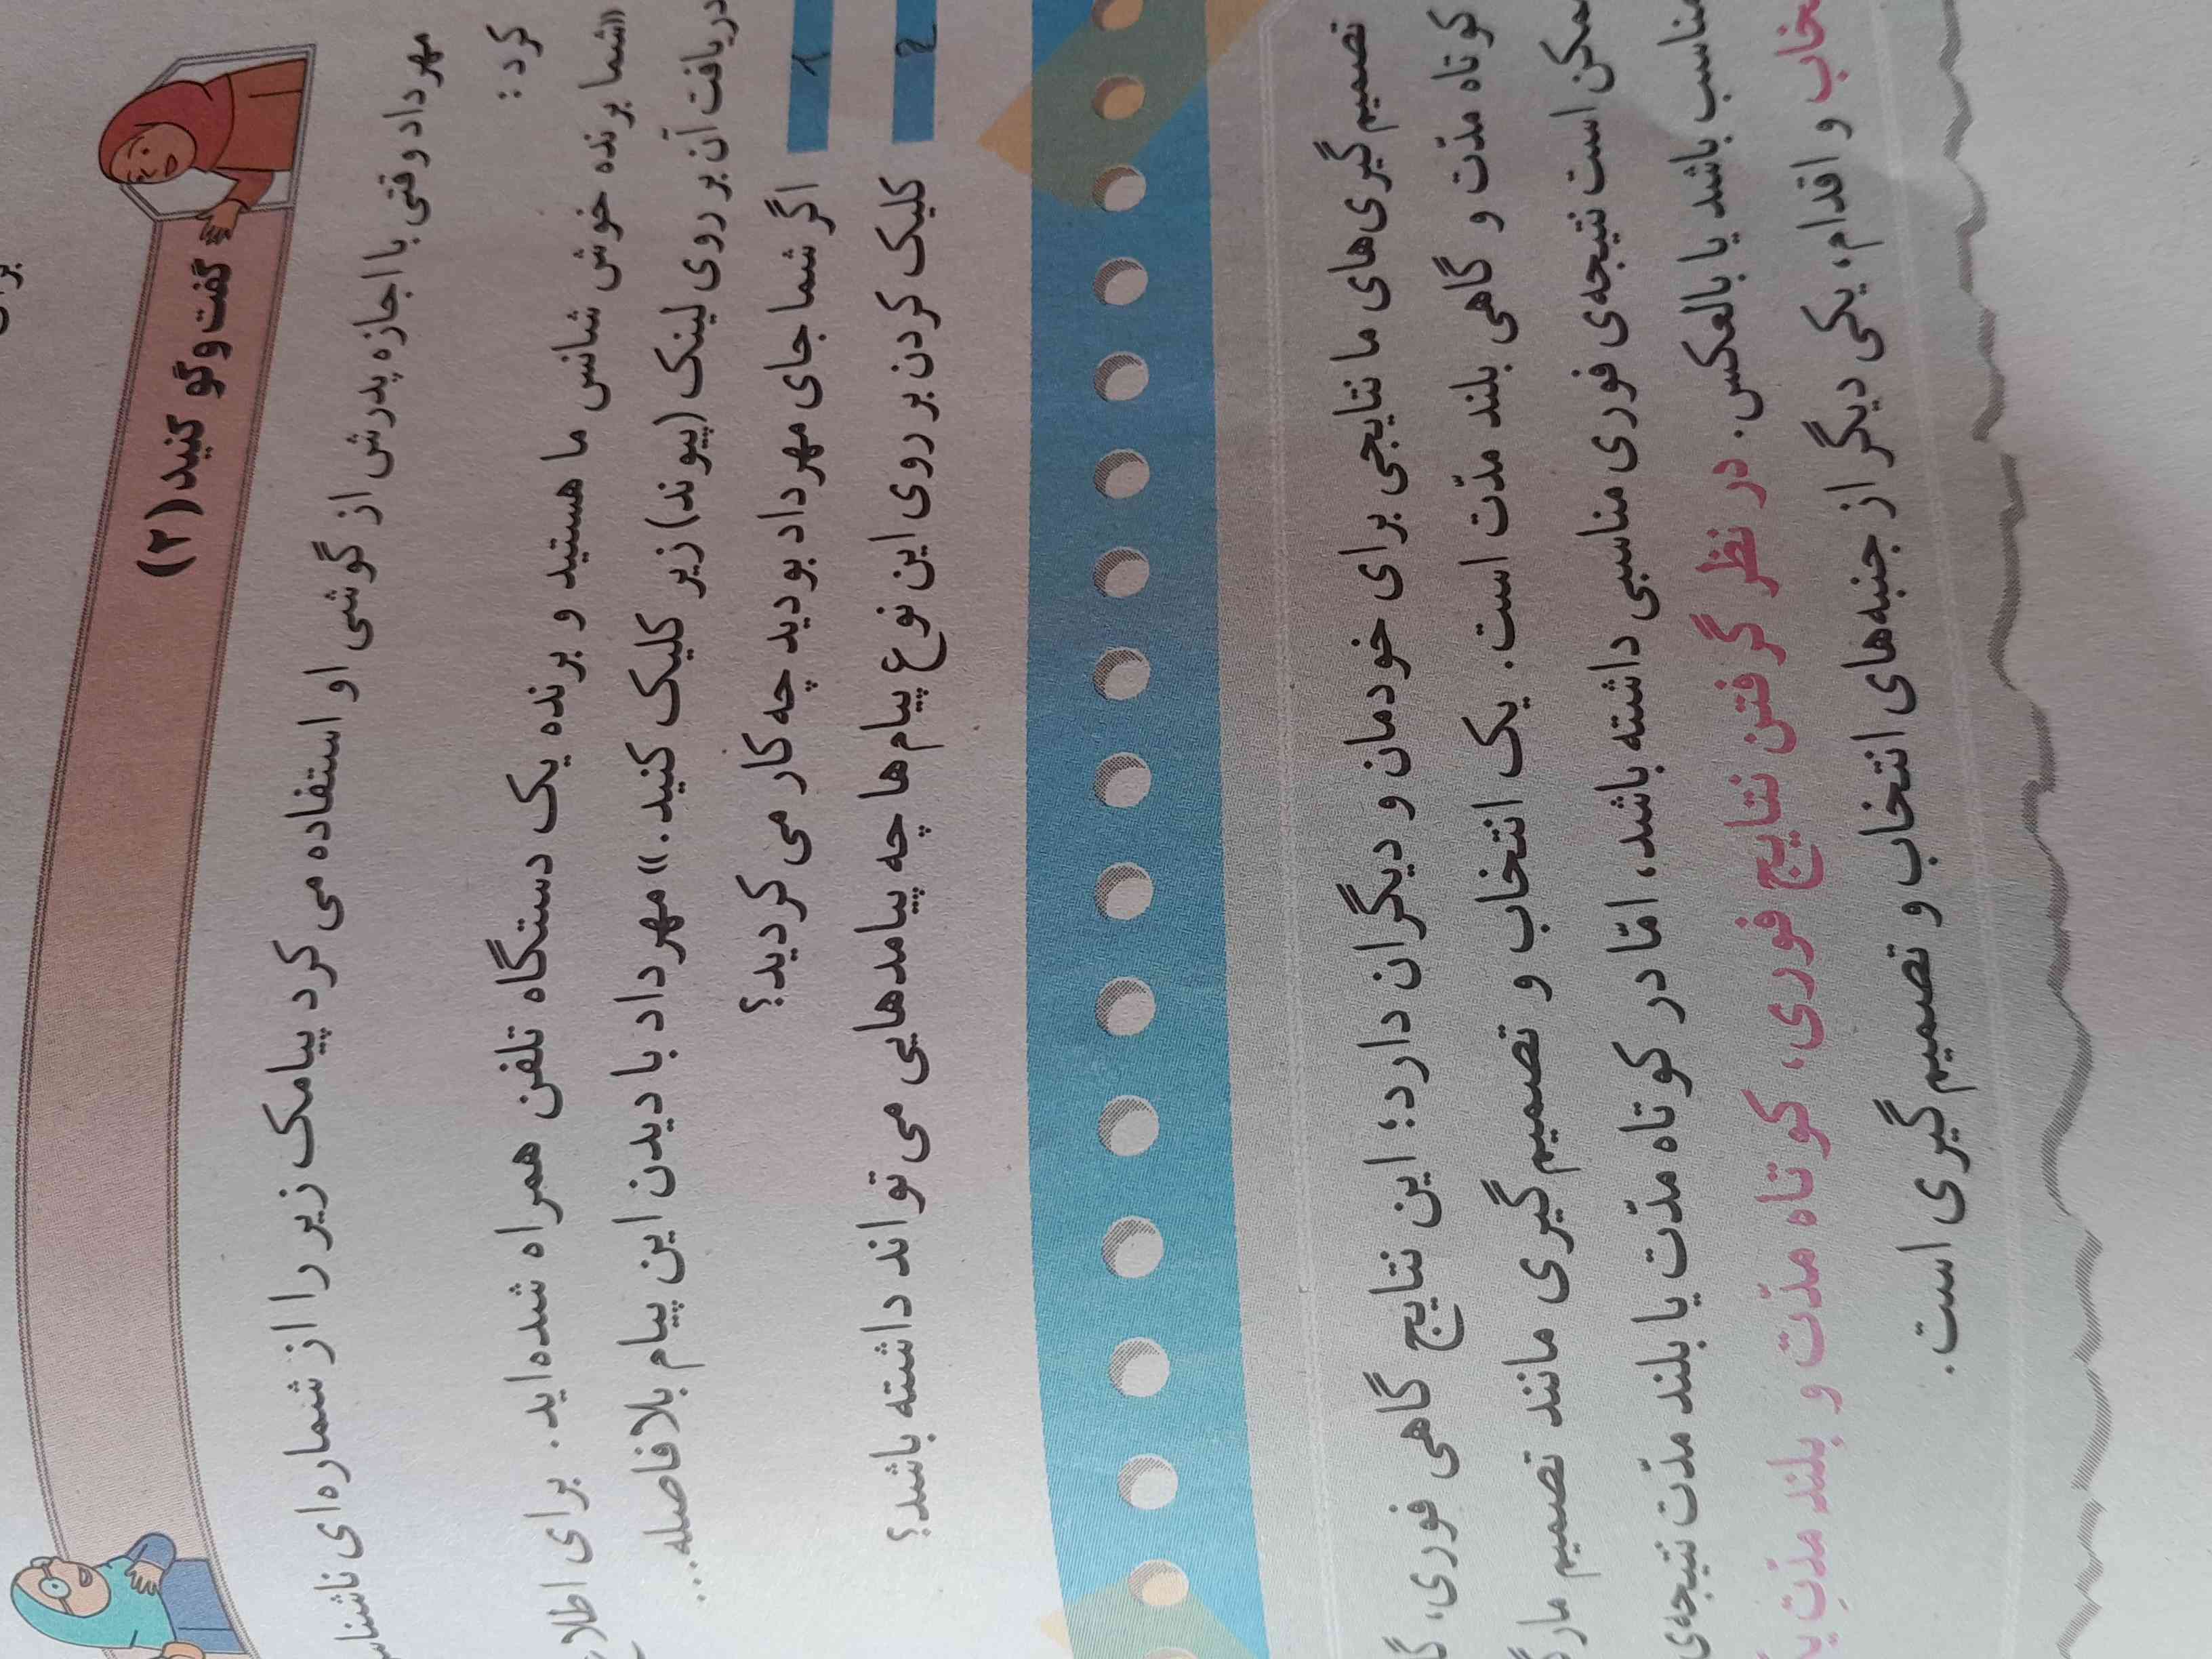 گفت و گو کنید (۲)
مهرداد وقتی با اجازه پدرش از گوشی او استفاده می کرد پیامک زیر را از شماره‌ای
کرد:
«شما برنده خوش شانس ما هستید و برنده یک دستگاه تلفن همراه شده‌اید. برای
دریافت آن بر روی لینک (پیوند) زیر کلیک کنید.» مهرداد با دیدن این پیام بلافاصله...
1 اگر شما جای مهرداد بودید چه کار می کردید؟
2 کلیک کردن بر روی این نوع پیام‌ها چه پیامدهایی می تواند داشته باشد؟
تصمیم گیری‌های ما نتایجی برای خودمان و دیگران دارد؛ این نتایج گاهی فوری،
کوتاه مدّت و گاهی بلند مدّت است. یک انتخاب و تصمیم گیری مانند تصمیم
است نتیجه‌ی فوری مناسبی داشته باشد، امّا در کوتاه مدّت یا بلند مدّت نتیجه‌ی
باشد یا بالعکس. در نظر گرفتن نتایج فوری، کوتاه مدّت و بلند مدّتِ
و اقدام، یکی دیگر از جنبه‌های انتخاب و تصمیم گیری است.